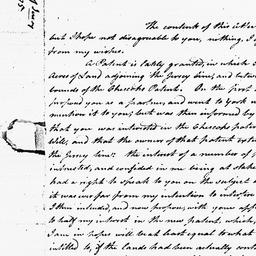 The contents of this letter
but I hope not disagreeable to you, nothing I
from my wishes.
A Patent is lately granted, in which I
Acres of Land adjoining the Jersey line, and betwe
bounds of the Chescoks Patent. On the first
proposed you as a partner, and went to york
mention it to you but was then informed by
that you was interested in the Chescoks paten
Will; and that the owners of that patent exte
the Jersey line: the interest of a number of
intrusted, and confided in me being at stake
had a right to speak to you on the subject
it was so far from my intention to interfere
I then intended, and now propose, with your app
to half my interest in the new patent, which,
I am in hopes will be at least equal to what
intitled to, if the Lands had been actually cont